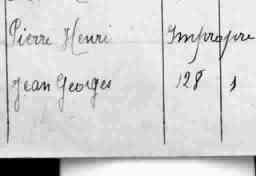 Pierre Henri Impropre
Jean Georges 128 1